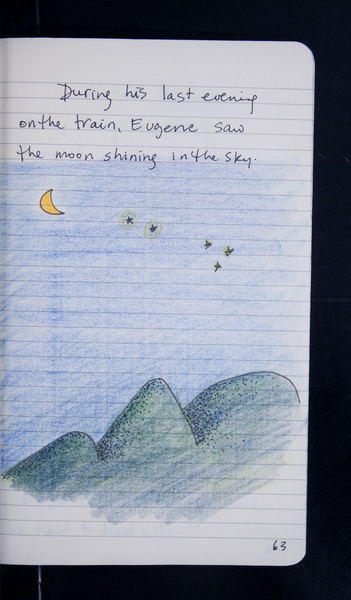 During his last evening
on the train, Eugene saw
the moon shining in the sky.
63